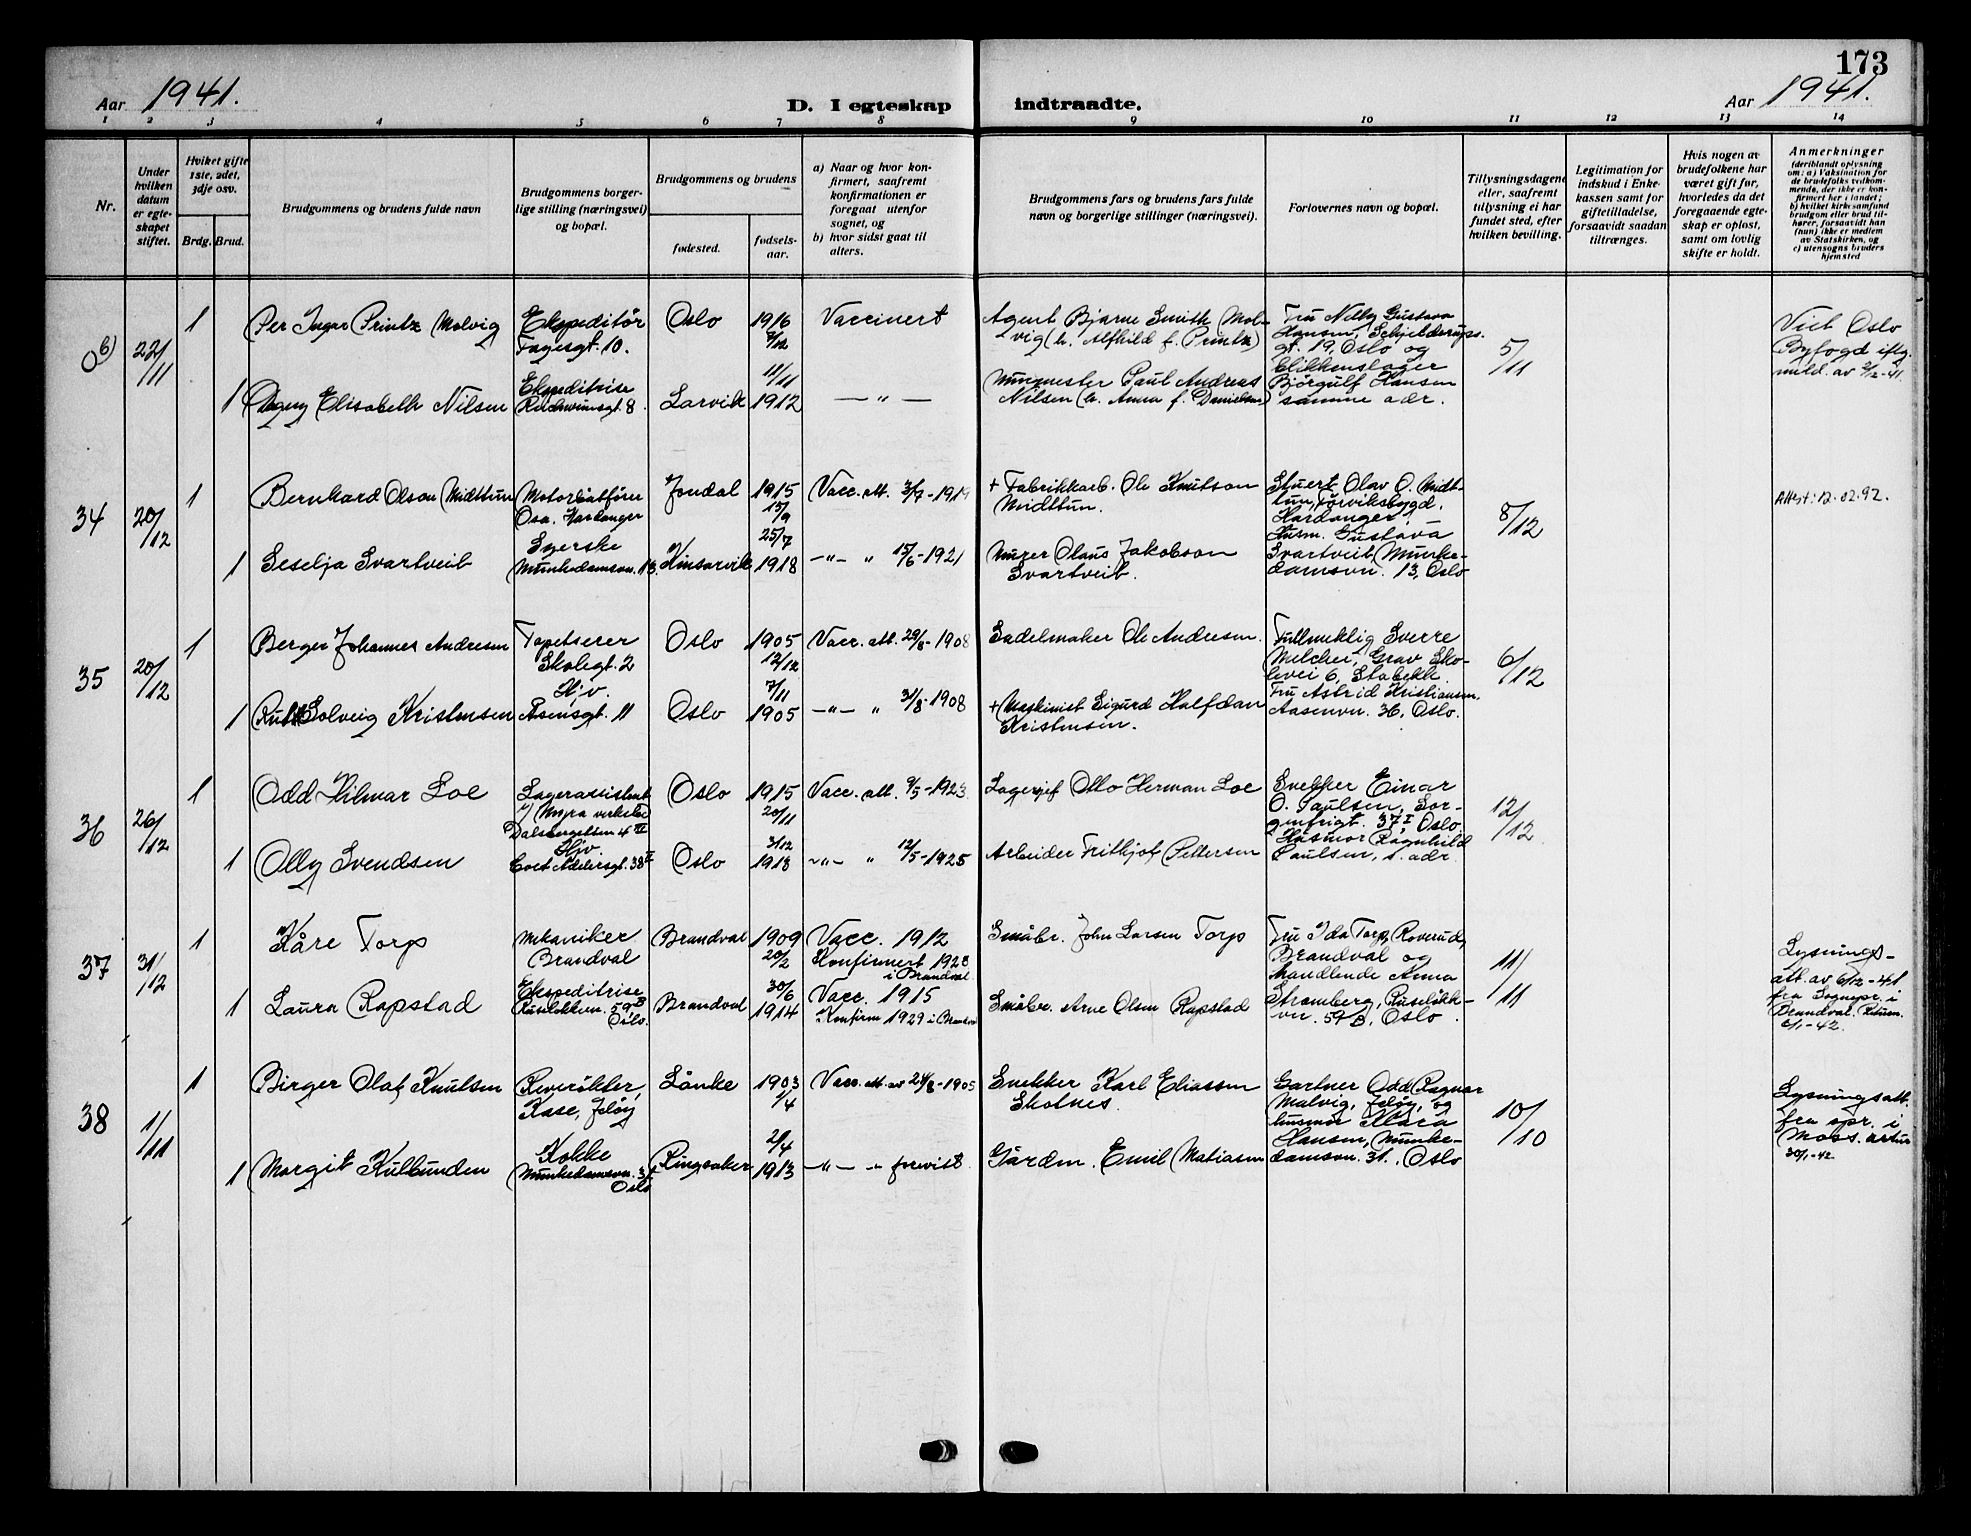 173
Aar 1941.
D. I egteskap indtraadte.
Aar 1941.
1 2 3 4 5 6 7 8 9 10 11 12 13 14
Nr.
Under hvilken datum er egteskapet stiftet.
Hviket gifte 1ste, 2det, 3dje osv.
Brdg. Brud.
Brudgommens og brudens fulde navn
Brudgommens borgerlige stilling (næringsvei) og bopæl.
Brudgommens og brudens
fødested.
fødselsaar.
a) Naar og hvor konfirmert, saafremt konfirmationen er foregaat utenfor sognet, og
b) hvor sidst gaat til alters.
Brudgommens fars og brudens fars fulde navn og borgerlige stillinger (næringsvei).
Forlovernes navn og bopæl.
Tillysningsdagene eller, saafremt tillysning ei har fundet sted, efter hvilken bevilling.
Legitimation for indskud i Enkekassen samt for giftetilladelse, forsaavidt saadan tiltrænges.
Hvis nogen av brudefolkene har været gift før, hvorledes da det foregaaende egteskap er opløst, samt om lovlig skifte er holdt.
Anmerkninger
(deriblandt oplysning om: a) Vaksination for de brudefolks vedkommende, der ikke er konfirmert her i landet; b) hvilket kirkesamfund brudgom eller brud tilhører, forsaavidt han (hun) ikke er medlem av Statskirken, og c) utensogns bruders hjemsted
0 b) 22/11
1 Per Ingar Printz Molvig
Ekspeditör
Fagesgt. 10.
Oslo
1916
Vaccinert
Agent Bjarne Smith Molvig (h. Alfhild f. Printz)
Fru Nelly Gustava
Hansen, Schjelderups
gt. 19, Oslo og
blikkenslager
Björgulf Hansen
samme adr.
5/11
Viet Oslo
Byfogd iflg.
meld. av 2/12-41.
1 Dagny Elisabeth Nilsen
Ekspeditrise
Larvik
11/11
1912
— " —
Murmester Paul Andreas
Nilsen (h. Anna f. Danielsen)
34 20/12
1 Bernhard Olson Midttun
Motorbåtförer
Osa. Hardanger
Jondal
1915
15/9
Vacc. att. 3/7-1919
+ Fabrikkarb. Ole Knutson
Midttun.
Stuert Olav O. Midttun, Törviksbygd.
Hardanger
Husm. Gustava
Svartveit Munkedamsvn. 13, Oslo
8/12
Attst: 12.02.92.
1 Seselja Svartveit
Syerske
Munkedamsvn. 13.
Kinsarvik
25/7
1918
—"— " 15/6-1921
Murer Olaus Jakobson
Svartveit.
35 20/12
1 Berger Johannes Andresen
Tapetserer
Skolegt. 2
Oslo
1905
12/12
Vacc. att. 29/8-1908
Sadelmaker Ole Andresen.
Fullmektig Sverre
Melcher, Grav Skolevei 6, Stabekk.
Fru Astrid Kristiansen.
Aasenvn. 36, Oslo.
6/12
1 Ruth Solveig Kristensen
Hjv.
Åsensgt. 11
Oslo
7/11
1905
—"— " 31/8-1908
+ Maskinist Sigurd Halfdan
Kristensen.
36 26/12
1 Odd Hilmar Loe
Lagerassistent
v/ Myra verksted
Dalsbergstien 4 III
Oslo
1915
20/11
Vacc. att. 9/5-1923.
Lagersjef Otto Herman Loe
Snekker Einar
O. Paulsen, Sorgenfrigt. 37 I, Oslo.
Husmor Ragnhild
Paulsen, s. adr.
12/12
1 Olly Svendsen
Hjv.
Oslo
31/12
1918
—"— " 12/5-1925
Arbeider Fritkjof Pettersen
37 31/12
1 Kåre Torp
Mekaniker
Brandval
Brandval
1909
20/2
Vacc. 1912
Konfirmert 1923
i Brandval
Småbr. John Larsen Torp
Fru Ida Torp, Roverud,
Brandval og
handlende Anna
Stromberg, Ruseløkkvn. 59 B, Oslo.
11/11
Lysningsatt. av 6/12-41
fra Sognepr. i
Brandval. Return.
1 Laura Rapstad
Ekspeditrise
Ruselökkvn. 59 B
Oslo.
Brandval
30/6
1914
Vacc. 1915
Konfirm 1929 i Brandval
Småbr. Arne Olsen Rapstad
38 1/11
1 Birger Olaf Knutsen
Reverökter,
Kase, Jelöy
Lånke
1903
1/4
Vacc. att. av 28/8-1905
Snekker Karl Eliassen
Skotnes.
Gartner Odd Ragnar
Malvig, Jelöy, og
husmor Klara
Hansen, Munkedamsvn. 31, Oslo
10/10
Lysningsatt.
fra spr. i
Moss. retur
30/1-42
1 Margit Kulbunden
Kokke
Munkedamsvn. 31
Oslo
Ringsaker
2/4
1913
—"— " forevist.
Gårdm. Emil Matiasen